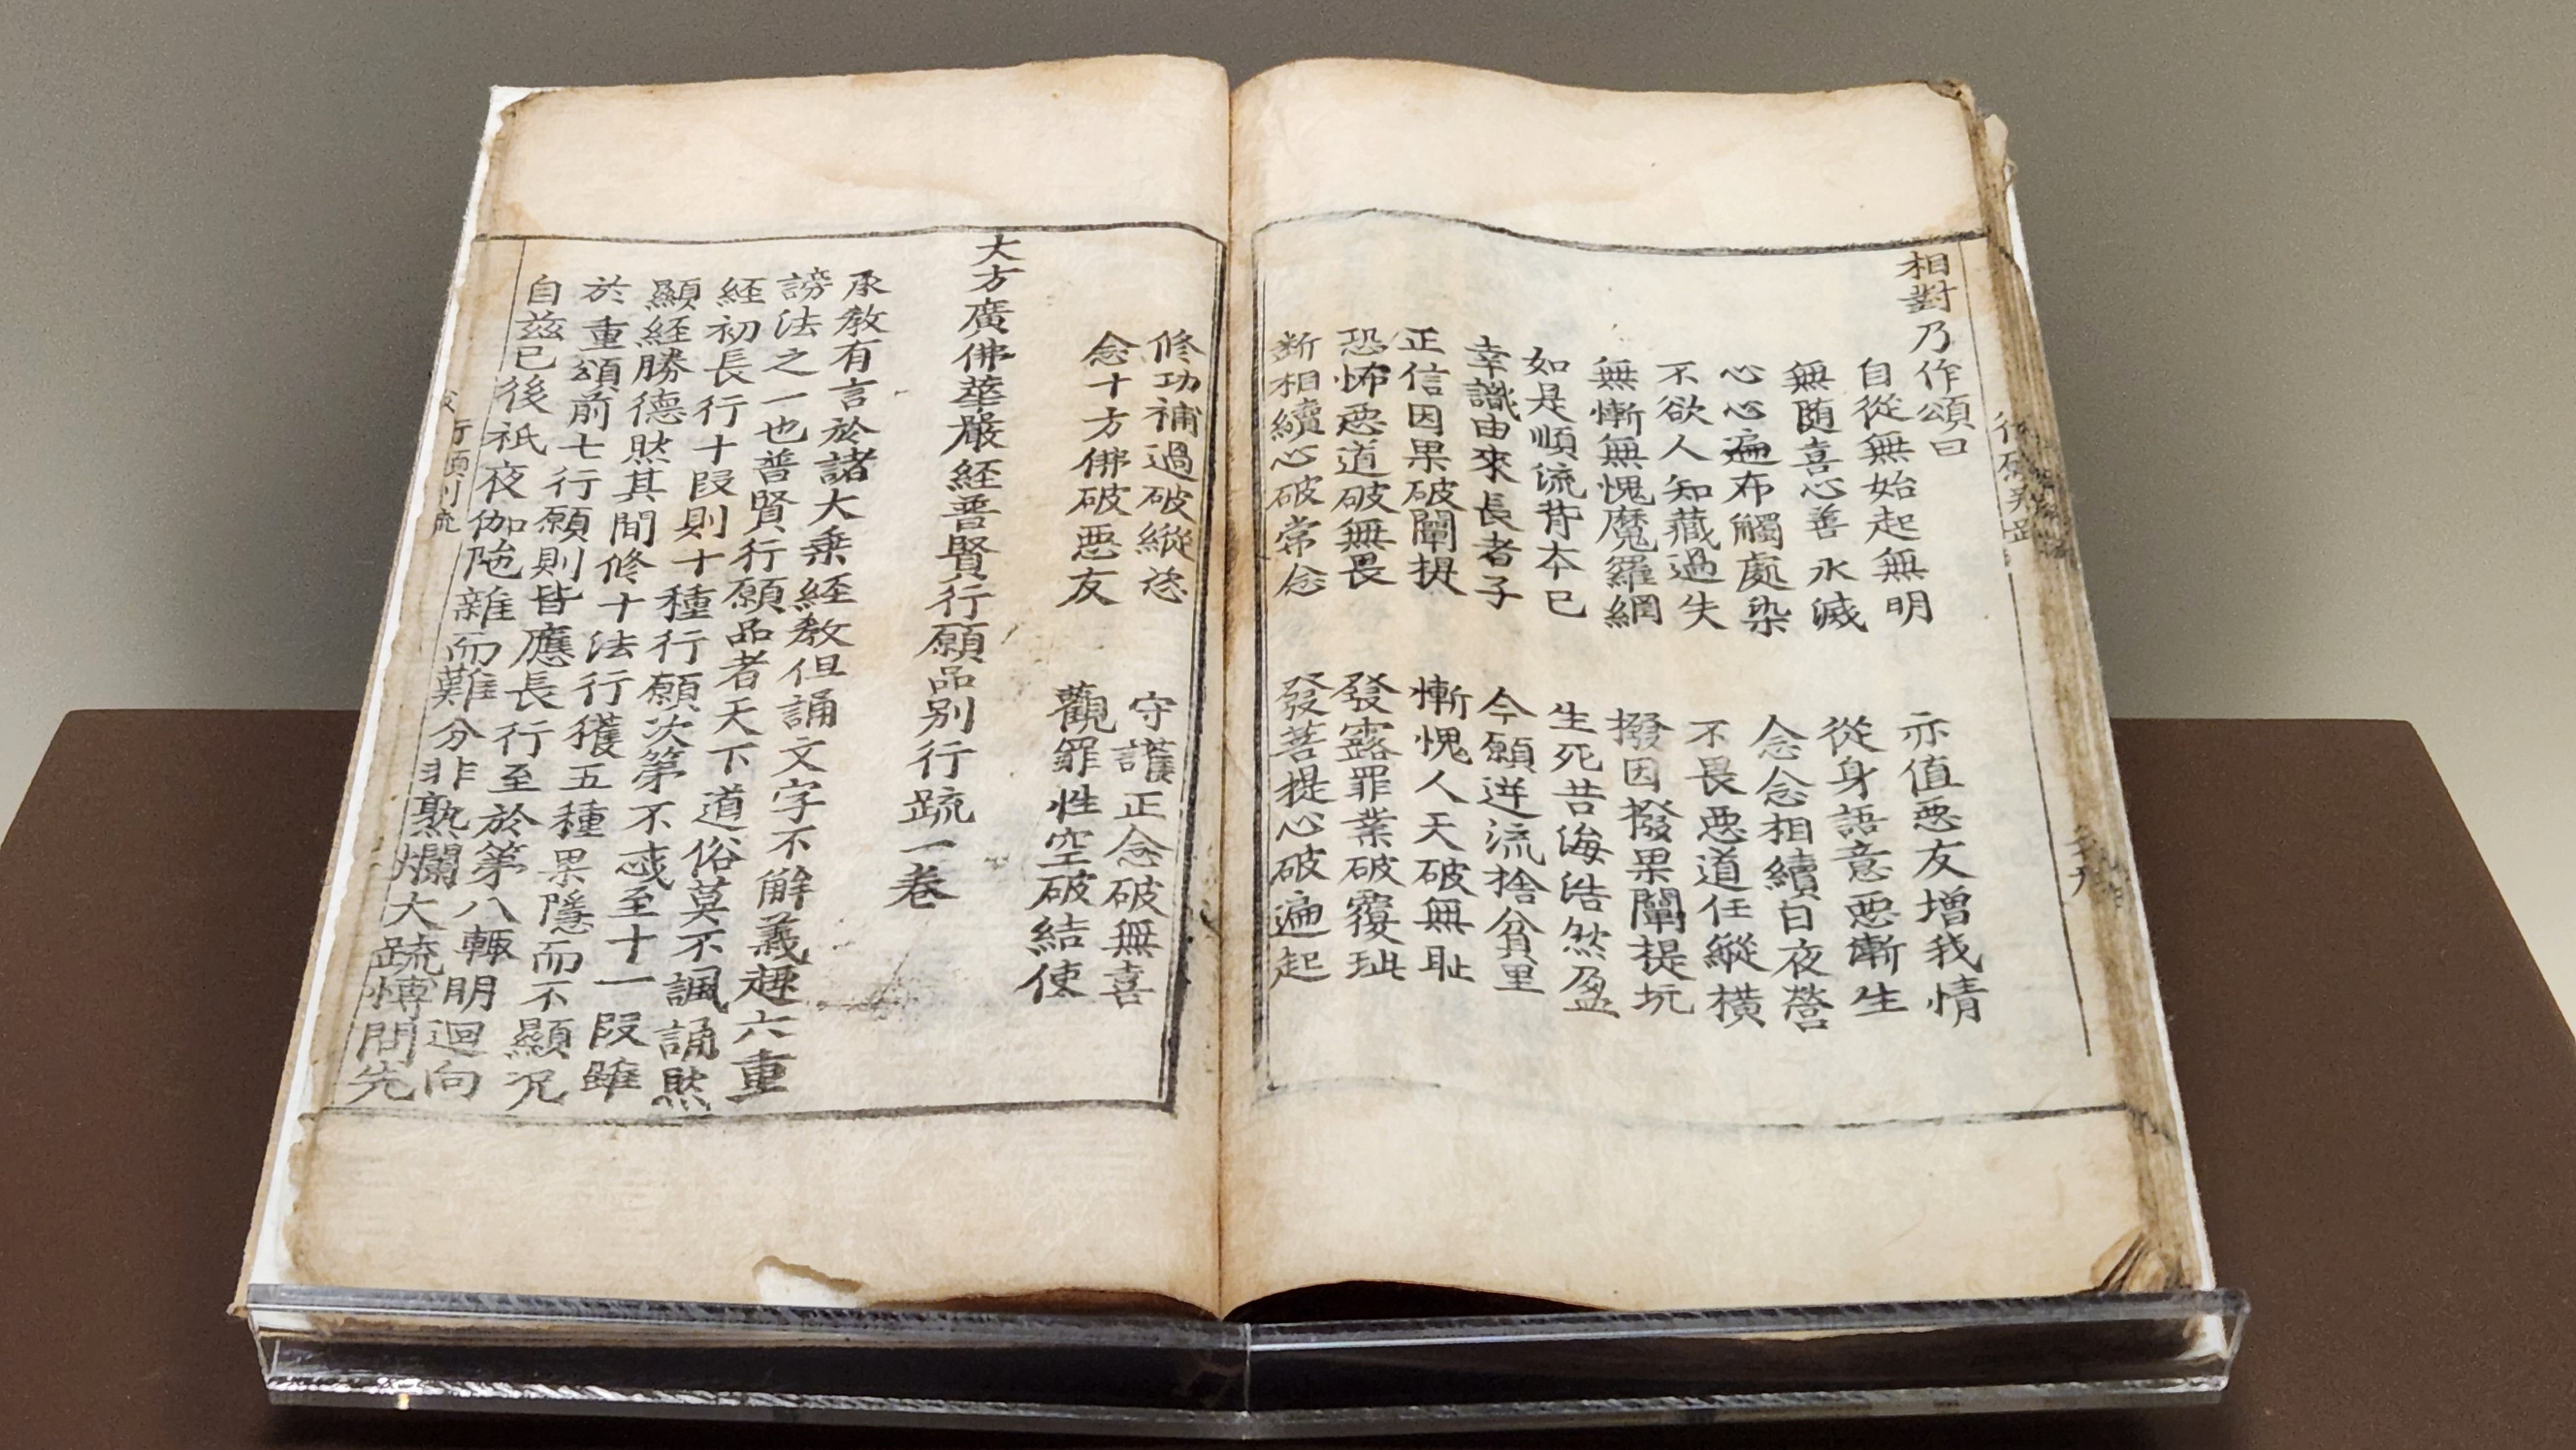 相對乃作頌曰
自從無始起無明　亦值惡友增我情
無随喜心善永滅　從身語意惡漸生
心心遍布觸處染　念念相續日夜營
不欲人知藏過失　不畏惡道任縱橫
無慚無愧魔羅網　撥因撥果闡提坑
如是順流背本已　生死苦海浩然盈
幸識由來長者子　今願逆流捨貧里
正信因果破闡提　慚愧人天破無恥
恐怖惡道破無畏　發露罪業破覆玼
斷相續心破常念　發菩提心破遍起
修功補過破縱恣　守護正念破無喜
念十方佛破惡友　觀罪性空破結使
大方廣佛華嚴経普賢行願品別行䟽一卷
承教有言於諸大乗経教但誦文字不解義趣六重
謗法之一也普賢行願品者天下道俗莫不諷誦然
経初長行十段則十種行願次第不惑至十一段雖
顯経勝德然其間修十法行獲五種果隱而不顯况
於重頌前七行願則皆應長行至於第八輙明迴向
自兹已後祇夜伽陁雜而難分非熟爛大䟽愽問先